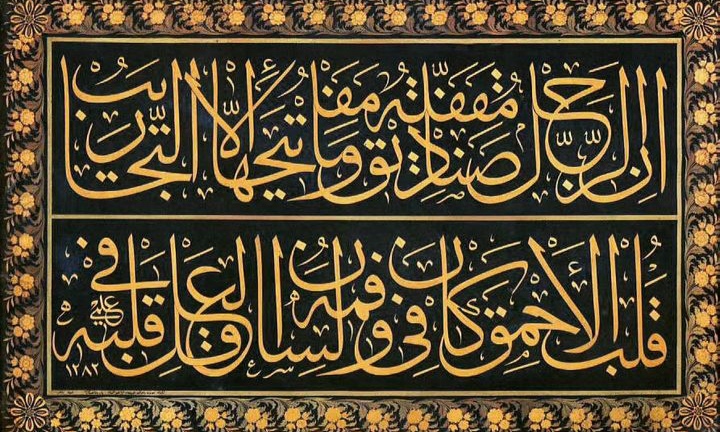 ان الرجال صناديق مقفلة وما مفاتيحها الا التجاريب
قلب الأحمق كان في فمه ولسان العاقل في قلبه
١٢٨٣